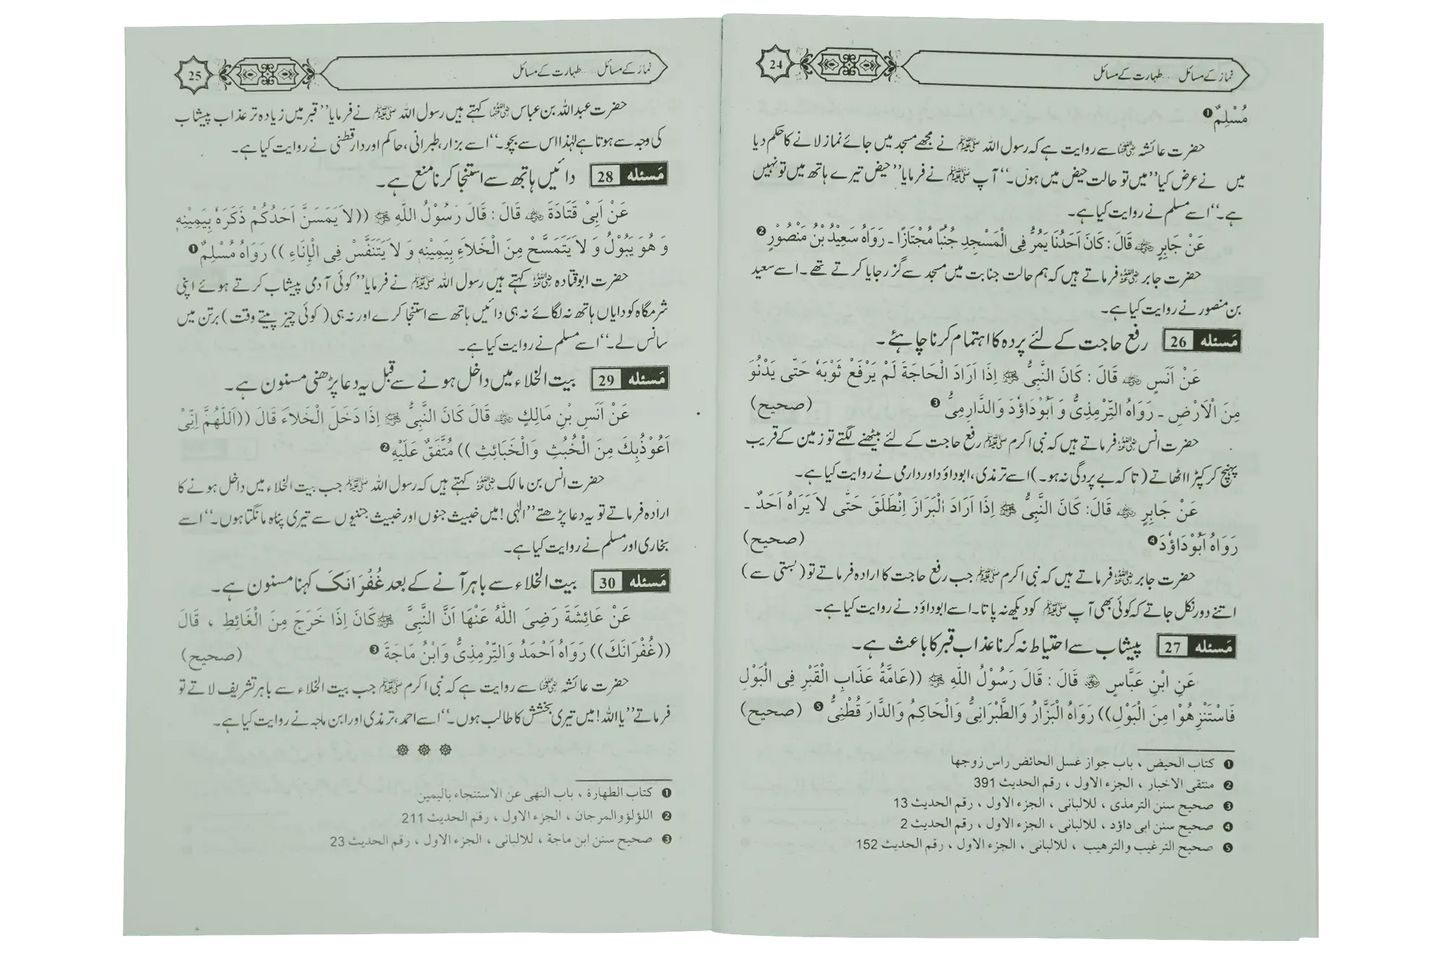 نماز کے مسائل.... طہارت کے مسائل
24
مُسْلِمٌ❶
حضرت عائشہ ؓ سے روایت ہے کہ رسول اللہ ﷺ نے مجھے مسجد میں جائے نماز لانے کا حکم دیا
میں نے عرض کیا ’’میں تو حالت حیض میں ہوں۔‘‘ آپ ﷺ نے فرمایا ’’حیض تیرے ہاتھ میں تو نہیں
ہے۔‘‘ اسے مسلم نے روایت کیا ہے۔
عَنْ جَابِرٍ ؓ قَالَ: كَانَ اَحَدُنَا يَمُرُّ فِى الْمَسْجِدِ جُنُبًا مُجْتَازًا۔ رَوَاهُ سَعِيْدُ بْنُ مَنْصُوْرٍ❷
حضرت جابر ؓ فرماتے ہیں کہ ہم حالت جنابت میں مسجد سے گزر جایا کرتے تھے۔ اسے سعید
بن منصور نے روایت کیا ہے۔
مَسئلہ 26 رفع حاجت کے لئے پردہ کا اہتمام کرنا چاہئے۔
عَنْ اَنَسٍ ؓ قَالَ : كَانَ النَّبِىُّ ﷺ اِذَا اَرَادَ الْحَاجَةَ لَمْ يَرْفَعْ ثَوْبَهٗ حَتّٰى يَدْنُوَ
مِنَ الْاَرْضِ۔ رَوَاهُ التِّرْمِذِىُّ وَ اَبُوْدَاوٗدَ وَالدَّارِمِىُّ❸ (صحيح)
حضرت انس ؓ فرماتے ہیں کہ نبی اکرم ﷺ رفع حاجت کے لئے بیٹھنے لگتے تو زمین کے قریب
پہنچ کر کپڑا اٹھاتے (تا کہ بے پردگی نہ ہو۔) اسے ترمذی، ابوداؤد اور دارمی نے روایت کیا ہے۔
عَنْ جَابِرٍ ؓ قَالَ: كَانَ النَّبِىُّ ﷺ اِذَا اَرَادَ الْبَرَازَ اِنْطَلَقَ حَتّٰى لاَ يَرَاهُ اَحَدٌ ۔
رَوَاهُ اَبُوْدَاوٗدَ❹ (صحيح)
حضرت جابر ؓ فرماتے ہیں کہ نبی اکرم ﷺ جب رفع حاجت کا ارادہ فرماتے تو (بستی سے)
اتنے دور نکل جاتے کہ کوئی بھی آپ ﷺ کو دیکھ نہ پاتا۔ اسے ابوداؤد نے روایت کیا ہے۔
مَسئلہ 27 پیشاب سے احتیاط نہ کرنا عذاب قبر کا باعث ہے۔
عَنِ ابْنِ عَبَّاسٍ ؓ قَالَ : قَالَ رَسُوْلُ اللّٰهِ ﷺ ((عَامَّةُ عَذَابِ الْقَبْرِ فِى الْبَوْلِ
فَاسْتَنْزِهُوْا مِنَ الْبَوْلِ)) رَوَاهُ الْبَزَّارُ وَالطَّبْرَانِىُّ وَالْحَاكِمُ وَالدَّارَ قُطْنِىُّ❺ (صحيح)
❶ كتاب الحيض ، باب جواز غسل الحائض راس زوجها
❷ منتقى الاخبار ، الجزء الاول ، رقم الحديث 391
❸ صحيح سنن الترمذى ، للالبانى ، الجزء الاول ، رقم الحديث 13
❹ صحيح سنن ابى داؤد ، للالبانى ، الجزء الاول ، رقم الحديث 2
❺ صحيح الترغيب والترهيب ، للالبانى ، الجزء الاول ، رقم الحديث 152
نماز کے مسائل.... طہارت کے مسائل
25
حضرت عبداللہ بن عباس ؓ کہتے ہیں رسول اللہ ﷺ نے فرمایا ’’قبر میں زیادہ تر عذاب پیشاب
کی وجہ سے ہوتا ہے لہٰذا اس سے بچو۔‘‘ اسے بزار، طبرانی، حاکم اور دار قطنی نے روایت کیا ہے۔
مَسئلہ 28 دائیں ہاتھ سے استنجا کرنا منع ہے۔
عَنْ اَبِىْ قَتَادَةَ ؓ قَالَ : قَالَ رَسُوْلُ اللّٰهِ ﷺ ((لاَ يَمَسَّنَّ اَحَدُكُمْ ذَكَرَهٗ بِيَمِيْنِهٖ
وَ هُوَ يَبُوْلُ وَ لاَ يَتَمَسَّحْ مِنَ الْخَلاَءِ بِيَمِيْنِهٖ وَ لاَ يَتَنَفَّسْ فِى الْاِنَاءِ )) رَوَاهُ مُسْلِمٌ❶
حضرت ابوقتادہ ؓ کہتے ہیں رسول اللہ ﷺ نے فرمایا ’’کوئی آدمی پیشاب کرتے ہوئے اپنی
شرمگاہ کو دایاں ہاتھ نہ لگائے نہ ہی دائیں ہاتھ سے استنجا کرے اور نہ ہی (کوئی چیز پیتے وقت) برتن میں
سانس لے۔‘‘ اسے مسلم نے روایت کیا ہے۔
مَسئلہ 29 بیت الخلاء میں داخل ہونے سے قبل یہ دعا پڑھنی مسنون ہے۔
عَنْ اَنَسِ بْنِ مَالِكٍ ؓ قَالَ كَانَ النَّبِىُّ ﷺ اِذَا دَخَلَ الْخَلاَءَ قَالَ ((اَللّٰهُمَّ اِنِّىْ
اَعُوْذُبِكَ مِنَ الْخُبُثِ وَالْخَبَائِثِ )) مُتَّفَقٌ عَلَيْهِ❷
حضرت انس بن مالک ؓ کہتے ہیں کہ رسول اللہ ﷺ جب بیت الخلاء میں داخل ہونے کا
ارادہ فرماتے تو یہ دعا پڑھتے ’’الٰہی! میں خبیث جنوں اور خبیث جنیوں سے تیری پناہ مانگتا ہوں۔‘‘ اسے
بخاری اور مسلم نے روایت کیا ہے۔
مَسئلہ 30 بیت الخلاء سے باہر آنے کے بعد غُفْرَانَكَ کہنا مسنون ہے۔
عَنْ عَائِشَةَ رَضِىَ اللّٰهُ عَنْهَا اَنَّ النَّبِىَّ ﷺ كَانَ اِذَا خَرَجَ مِنَ الْغَائِطِ ، قَالَ
((غُفْرَانَكَ)) رَوَاهُ اَحْمَدُ وَالتِّرْمِذِىُّ وَابْنُ مَاجَةَ❸ (صحيح)
حضرت عائشہ ؓ سے روایت ہے کہ نبی اکرم ﷺ جب بیت الخلاء سے باہر تشریف لاتے تو
فرماتے ’’یا اللہ! میں تیری بخشش کا طالب ہوں۔‘‘ اسے احمد، ترمذی اور ابن ماجہ نے روایت کیا ہے۔
❶ كتاب الطهارة ، باب النهى عن الاستنجاء باليمين
❷ اللؤلؤ والمرجان ، الجزء الاول ، رقم الحديث 211
❸ صحيح سنن ابن ماجة ، للالبانى ، الجزء الاول ، رقم الحديث 23